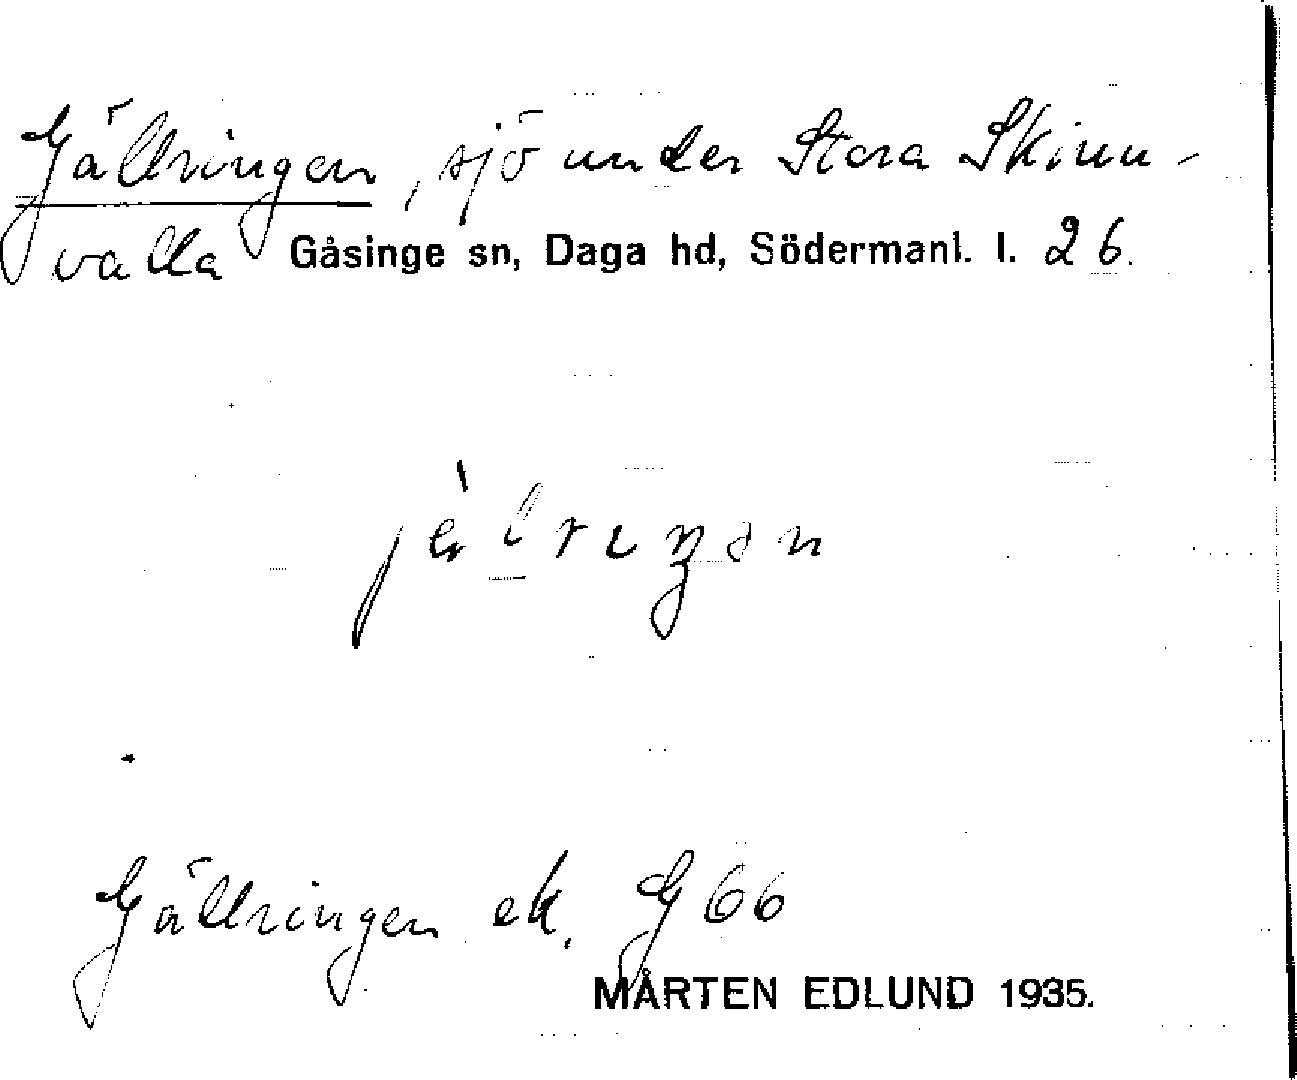 Gällringen, sjö under Stora Skinn-
valla Gåsinge sn, Daga hd, Södermanl. l. 26.
jä̀lrıŋən
Gällringen ek. G 66
MÅRTEN EDLUND 1935.